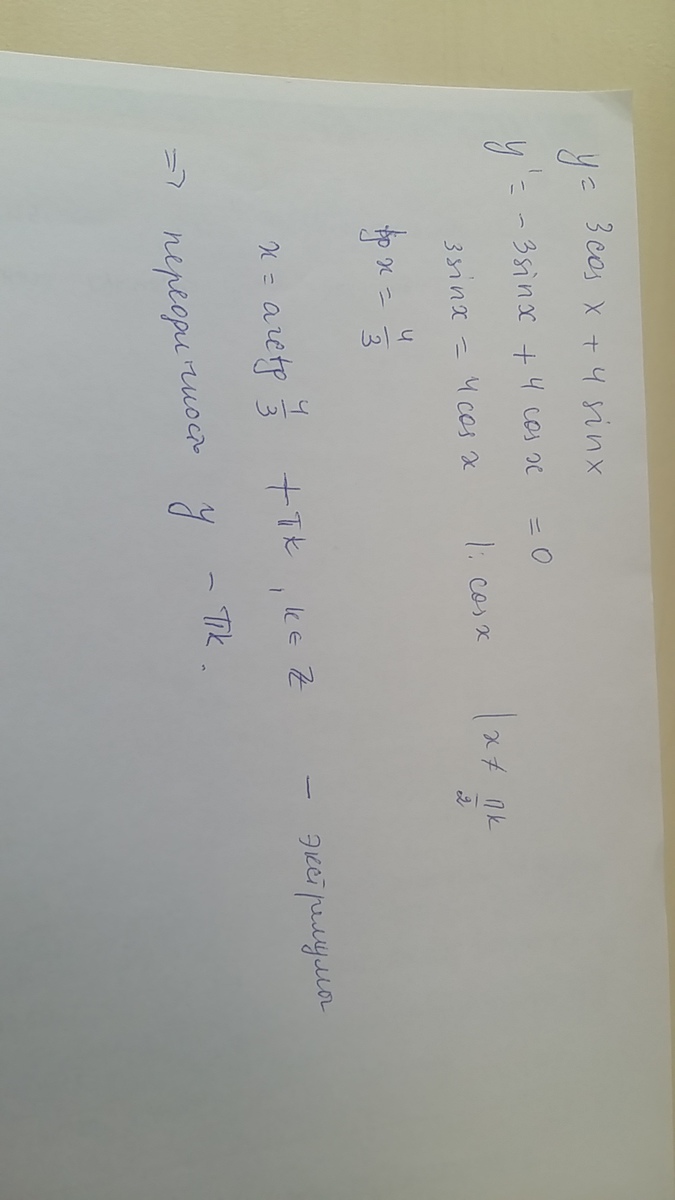 y = 3cos x + 4 sinx
y' = - 3sinx + 4 cosx = 0
3sinx = 4cosx |: cosx | x ≠ πk/2
tg x = 4/3
x = arctg 4/3 + πk, k ∈ Z - экстримумы
=> переодичность y - πk.